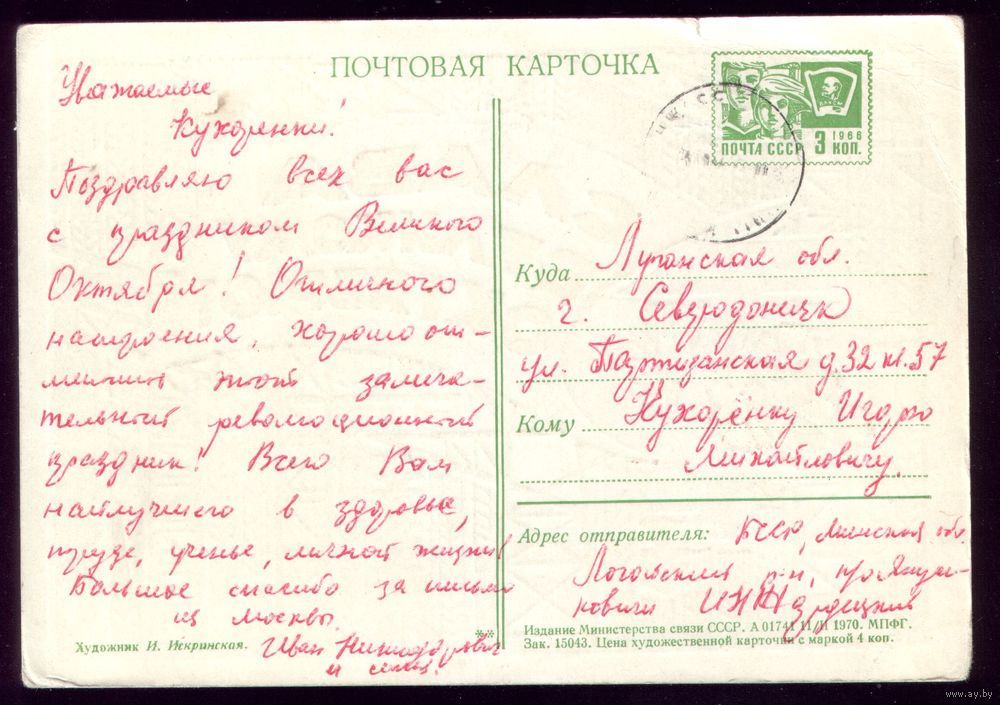 ПОЧТОВАЯ КАРТОЧКА
Уважаемые
Кухоренки!
Поздравляю всех вас
с праздником Великого
Октября! Отличного
настроения, хорошо от-
метить этот замеча-
тельный революционный
праздник! Всего Вам
найлучшего в здоровье,
труде, ученье, личной жизни
Большое спасибо за письмо
из Москвы.
Иван Никифорович
и семья.
Художник И. Искринская.
1966
ПОЧТА СССР 3 КОП.
Куда Луганская обл.
г. Северодонецк
ул. Партизанская д. 32 кв. 57
Кому Кухорёнку Игорю
Михайловичу.
Адрес отправителя: БССР, Минская обл.
Логойский р-н, п/о Януш-
ковичи
**
Издание Министерства связи СССР. А 01741 11/II 1970. МПФГ.
Зак. 15043. Цена художественной карточки с маркой 4 коп.
www.ay.by